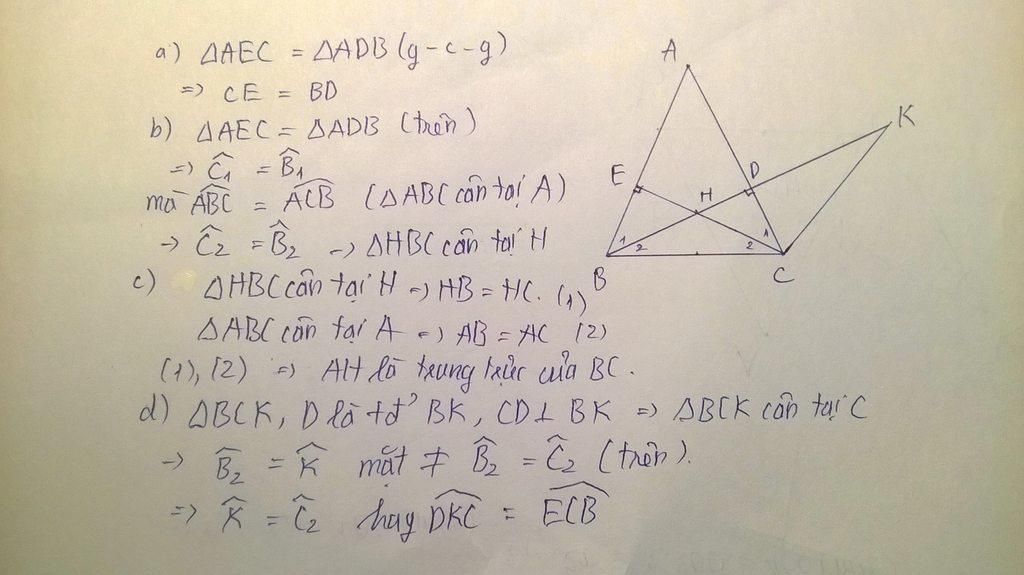 a) ΔAEC = ΔADB (g-c-g)
=> CE = BD
b) ΔAEC = ΔADB (trên)
=> Ĉ₁ = B̂₁
mà \widehat{ABC} = \widehat{ACB} (ΔABC cân tại A)
-> Ĉ₂ = B̂₂ -> ΔHBC cân tại H
c) ΔHBC cân tại H => HB = HC. (1)
ΔABC cân tại A => AB = AC (2)
(1), (2) => AH là trung trực của BC.
d) ΔBCK, D là tđ' BK, CD ⊥ BK => ΔBCK cân tại C
-> B̂₂ = K̂ mặt ≠ B̂₂ = Ĉ₂ (trên).
=> K̂ = Ĉ₂ hay \widehat{DKC} = \widehat{ECB}
A
K
E
D
H
1
2
2
1
B
C